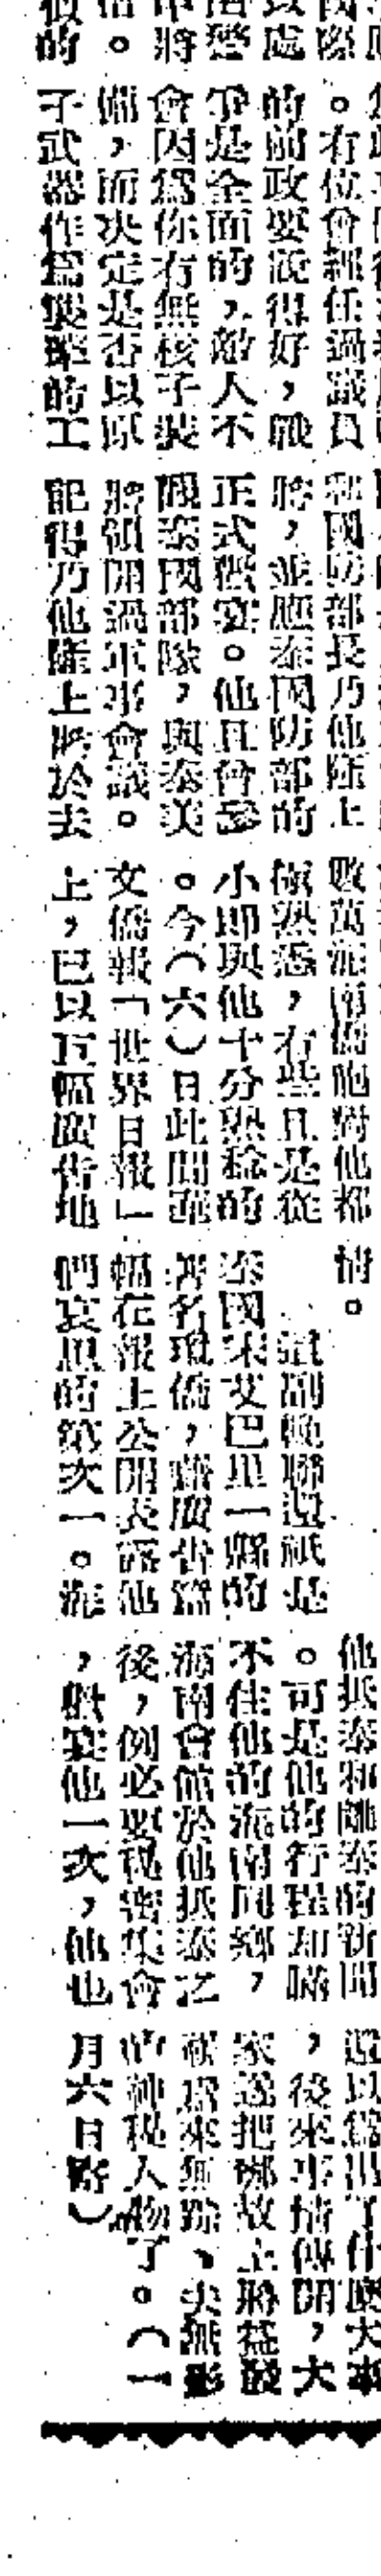 國際
以處
中將
。
似的
。有位曾經任過議員
的前政要說得好,戰
爭是全面的,敵人不
會因爲你有無核子裝
備,而決定是否以原
子武器作爲毀滅的工
和國防部長乃他隆上
將,並應泰國防部的
正式邀宴。他且曾參
觀泰國部隊,與泰美
將領開過軍事會議。
記得乃他隆上將於去
數萬海南僑胞對他都
很熟悉,有些且是從
小即與他十分熟稔的
。今(六)日此間華
文僑報「世界日報」
上,已以五幅廣告地
情。
這副輓聯還祇是
泰國宋艾巴里一縣的
著名瓊僑,藉廣告篇
幅在報上公開表露他
們哀思的第次一。海
他抵泰和離泰的新聞
。可是他的行程却瞞
不住他的海南同鄉,
海南會館於他抵泰之
後,例必要秘密集會
,歡宴他一次,他也
還以爲出了什麽大事
,後來事情傳開,大
家遂把鄭故上將益發
視爲來無踪、去無影
的神秘人物了。(一
月六日寄)